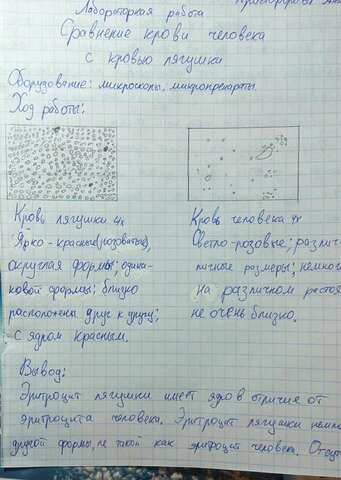 Лабораторная работа
Сравнение крови человека
с кровью лягушки
Оборудование: микроскопы, микропрепараты.
Ход работы:
Кровь лягушки 4х
Ярко-красные(розоватые),
округлая формы; одина-
ковой формы; близко
расположены друг к другу;
с ядром красным.
Кровь человека 4х
Светло-розовые; различ
личные размеры; немног
на различном расстоя
не очень близко.
Вывод:
Эритроцит лягушки имеет ядро в отличие от
эритроцита человека. Эритроцит лягушки немн
другой формы, не такой как эритроцит человека. Отсут